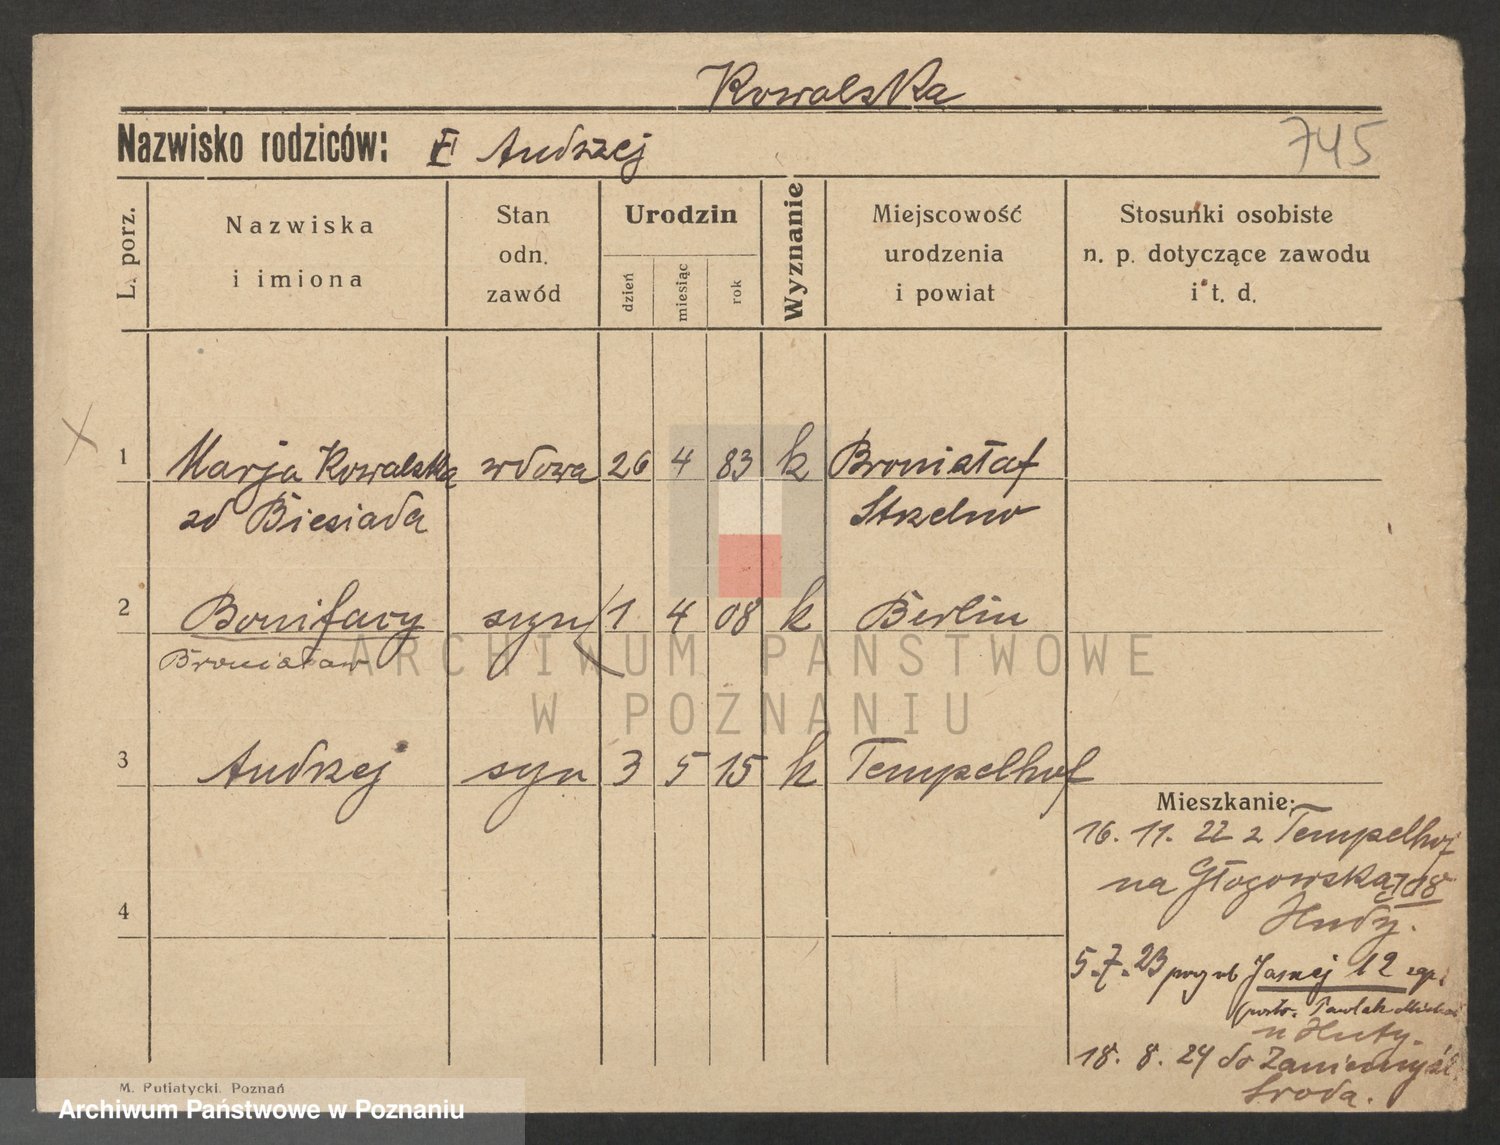 Kowalska
Nazwisko rodziców: Andrzej
745
L. porz.
Nazwiska
i imiona
Stan
odn.
zawód
Urodzin
dzień
miesiąc
rok
Wyznanie
Miejscowość
urodzenia
i powiat
Stosunki osobiste
n. p. dotyczące zawodu
i t. d.
1 Marja Kowalska wdowa 26 4 83 k Bronisław
zd Biesiada Strzelno
2 Bonifacy syn 1 4 08 k Berlin
Bronisław
ARCHIWUM PAŃSTWOWE
W POZNANIU
3 Andrzej syn 3 5 15 k Tempelhof
Mieszkanie:
16. 11. 22 z Tempelhof
na Głogowską 108
4
5.7.23 przy ul Jasnej 12
u Huty.
18. 8. 24 do Zaniemyśl
Środa.
M. Putiatycki, Poznań
Archiwum Państwowe w Poznaniu